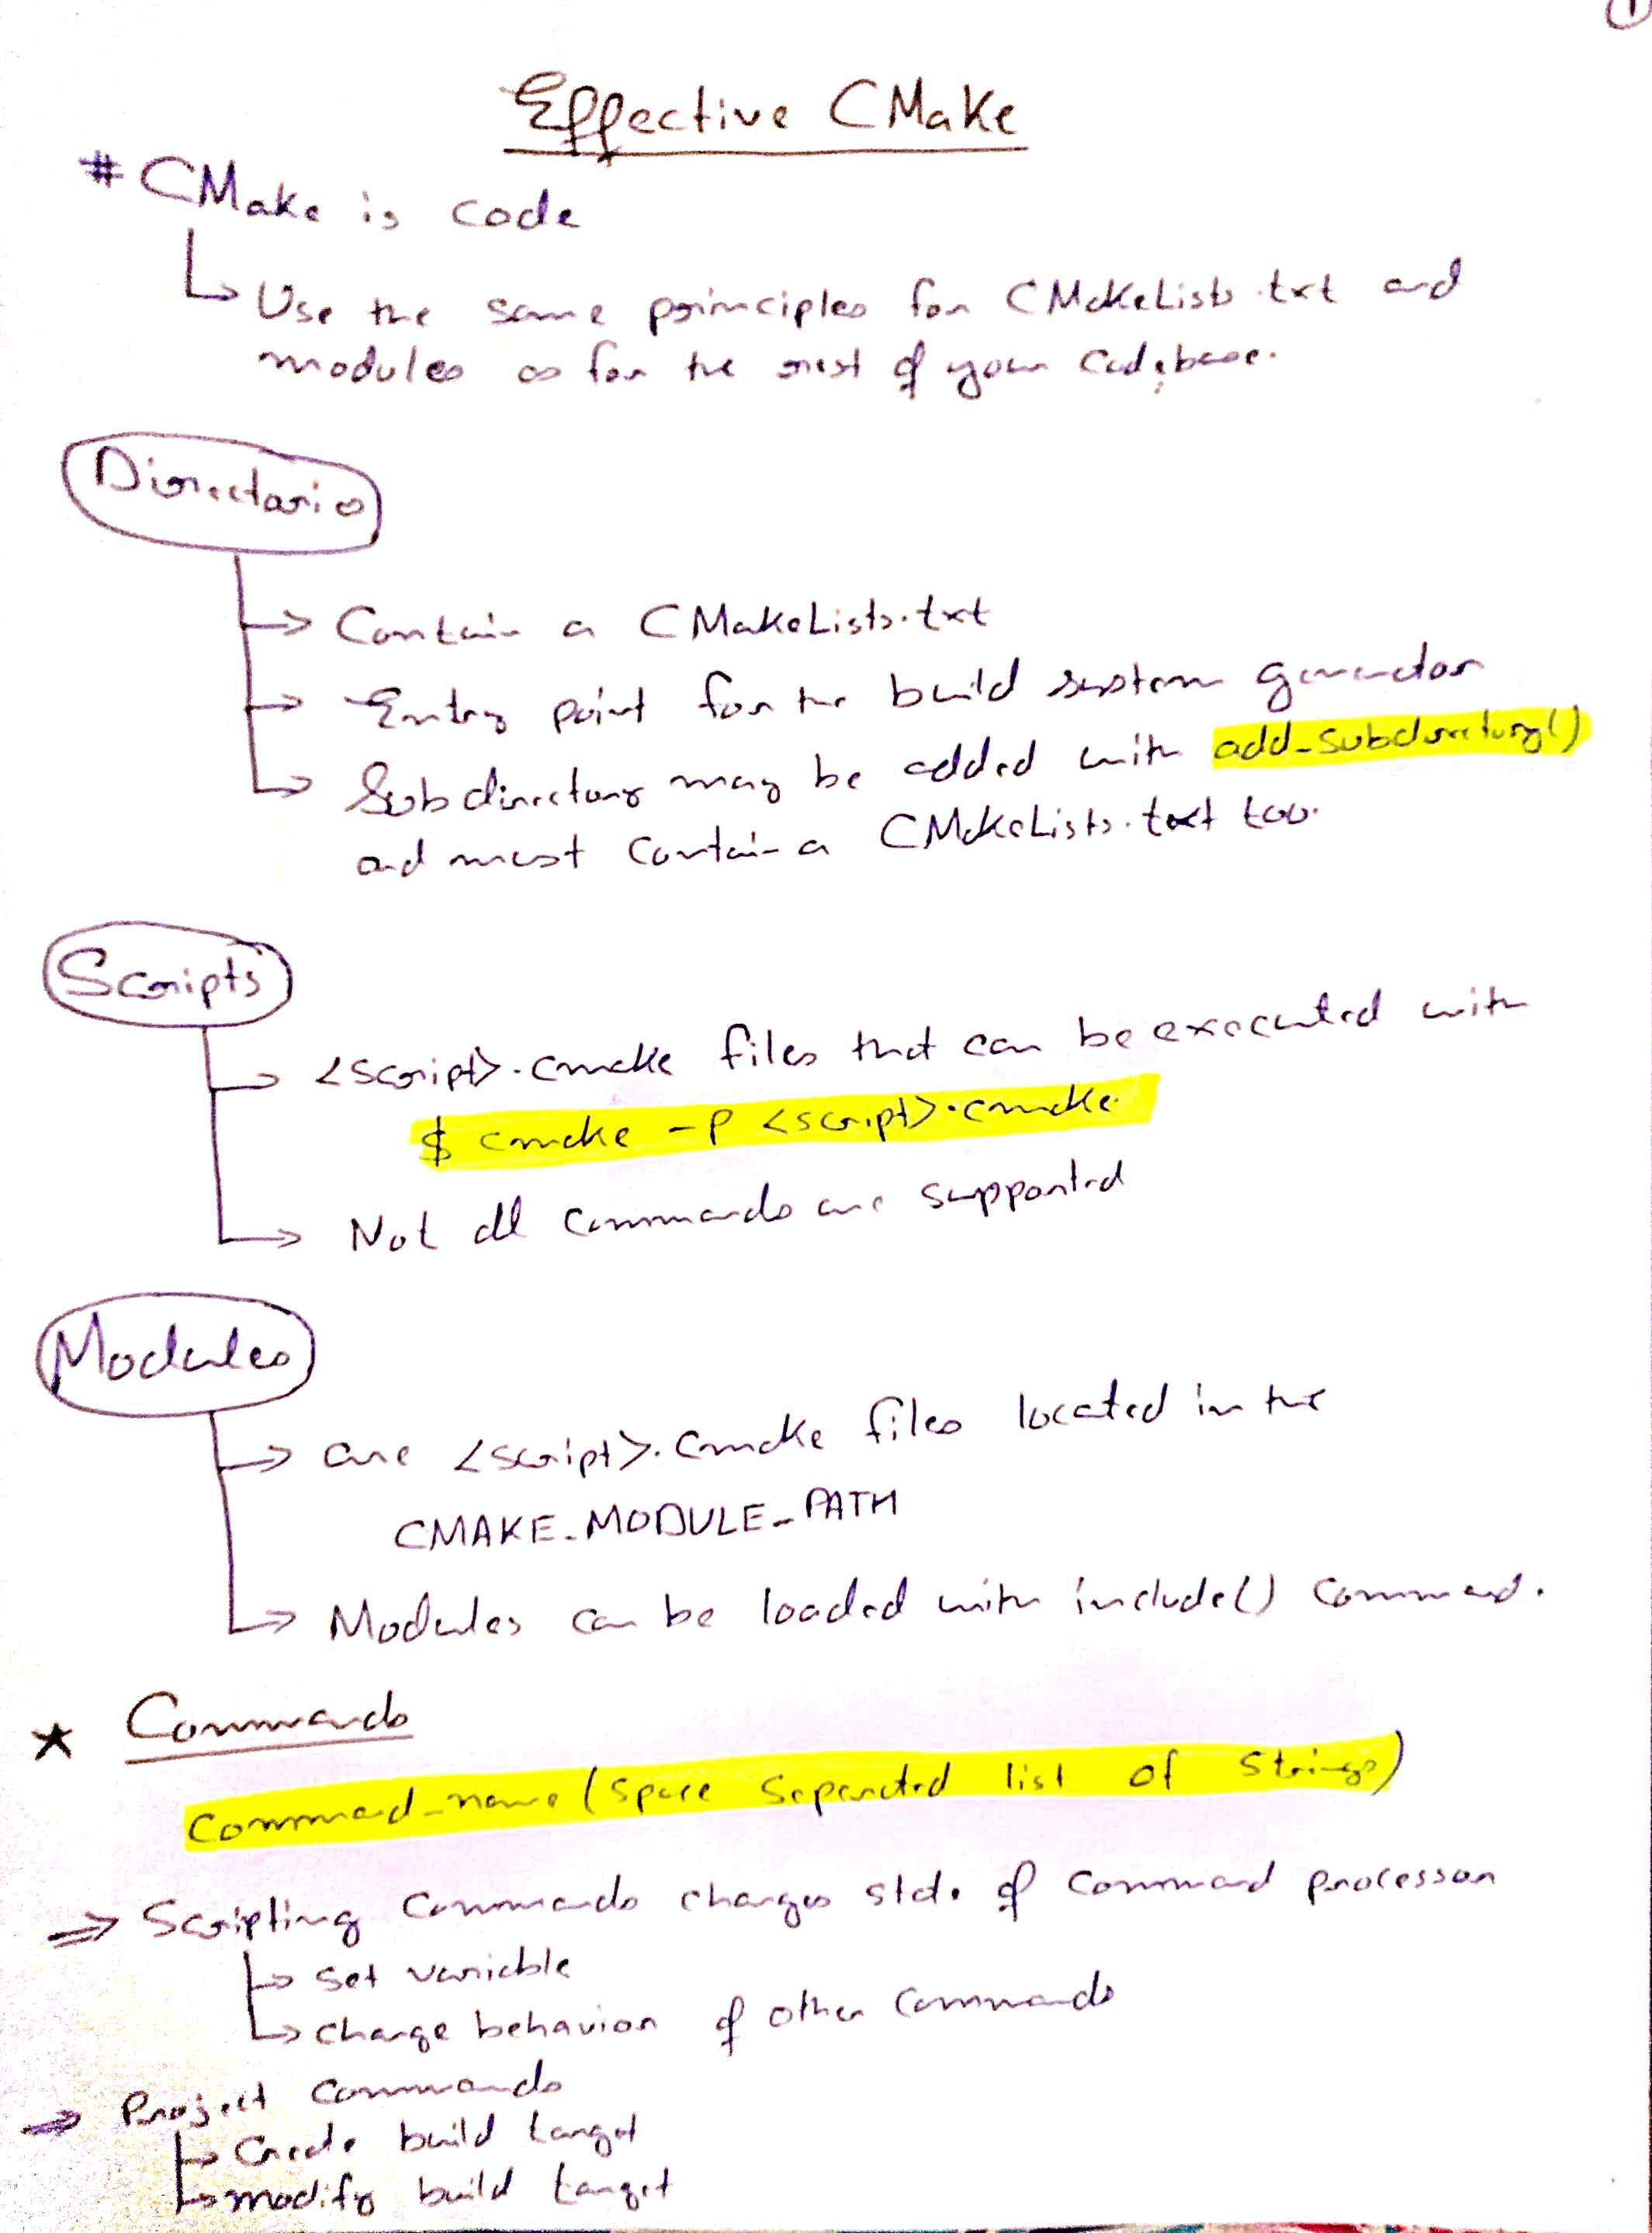 1
Effective CMake
# CMake is code
Use the same principles for CMakeLists.txt and
modules as for the rest of your codebase.
Directories
Contain a CMakeLists.txt
Entry point for the build system generator
Subdirectory may be added with add_subdirectory()
and must contain a CMakeLists.txt too.
Scripts
<script>.cmake files that can be executed with
$ cmake -P <script>.cmake
Not all commands are supported
Modules
are <script>.cmake files located in the
CMAKE_MODULE_PATH
Modules can be loaded with include() command.
★ Commands
command_name (space separated list of strings)
⇒ Scripting commands changes state of command processor
set variable
change behavior of other commands
⇒ Project Commands
Create build target
modify build target